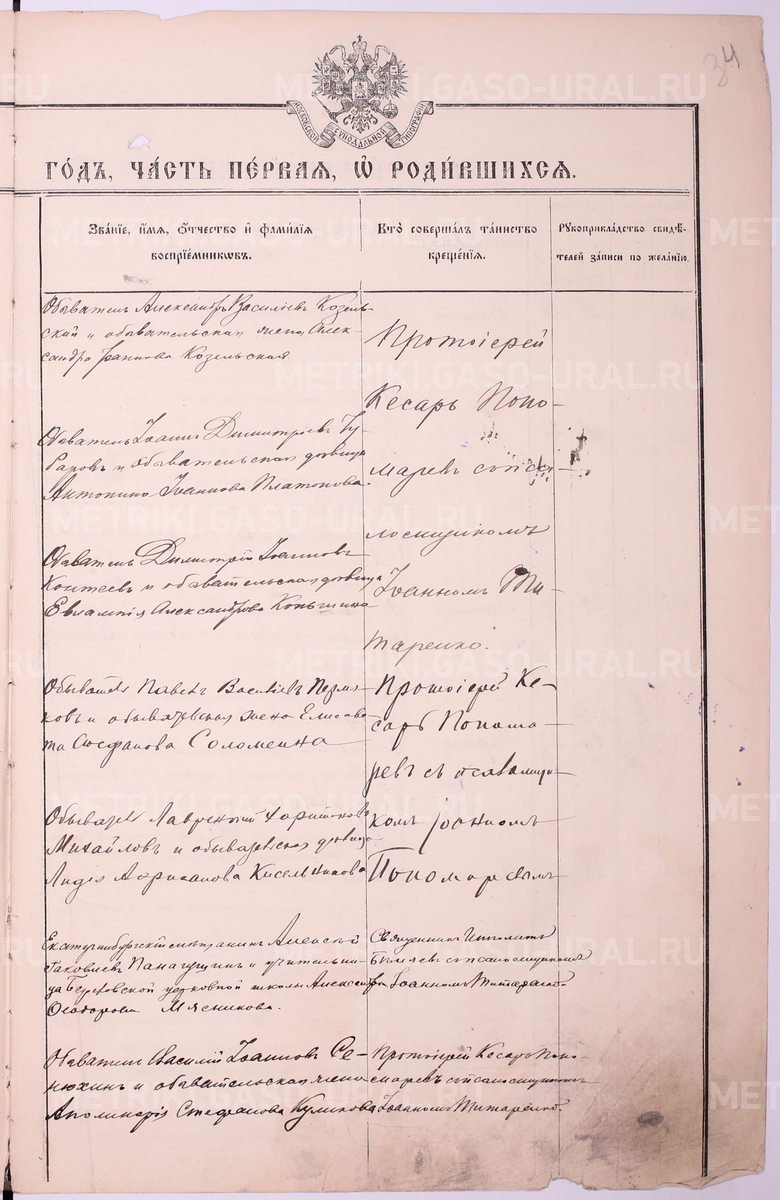 34
МОСКОВСКОЙ СѴНОДАЛЬНОЙ ТИПОГРАФІИ
ГО́ДЪ, ЧА́СТЬ ПЕ́РВАЯ, Ѽ РОДИ́ВШИХСЯ.
Зва́нїе, и́мя, ѻ҆́тчество и҆ фами́лїя
воспрїе́мникѡвъ.
Кто̀ соверша́лъ та́инство
креще́нїя.
Рꙋкоприкла́дство свидѣ́-
телей за́писи по жела́нїю.
Обыватель Александръ Василіевъ Козель-
ский и обывательская жена Алек-
сандра Іваннова Козельская
Протоіерей
Кесарь Поно-
маревъ съ псал-
ломщикомъ
Іоанномъ Ти-
таренко.
Обыватель Іоаннъ Димитріевъ
и обывательская девица
Антонина Іоаннова Платонова.
Обыватель Димитрій Іоанновъ
Коптеевъ и обывательская девица
Евлампія Александрова Копышина
Обыватель Павелъ Василіевъ Перми-
ковъ и обывательская жена Елисаве-
та Стефанова Соломеина
Протоіерей Ке-
сарь Понома-
ревъ съ псаломщи-
комъ Іоанномъ
Пономаревымъ
Обыватель Лаврентій Харитоновъ
Михайловъ и обывательская девица
Лидія Африканова Кисельникова
Екатеринбургскій мещанинъ Алексей
Іаковлевъ Панагушинъ и учительни-
ца церковной школы Александра
Феодорова Мясникова.
Священникъ Ипполитъ
съ псаломщикомъ
Іоанномъ Титаренко
Обыватель Василій Іоанновъ Се-
нюхинъ и обывательская жена
Аполинарія Стефанова Куликова
Протоіерей Кесарь Поно-
маревъ съ псаломщикомъ
Іоанномъ Титаренко.
METRIKI.GASO-URAL.RU